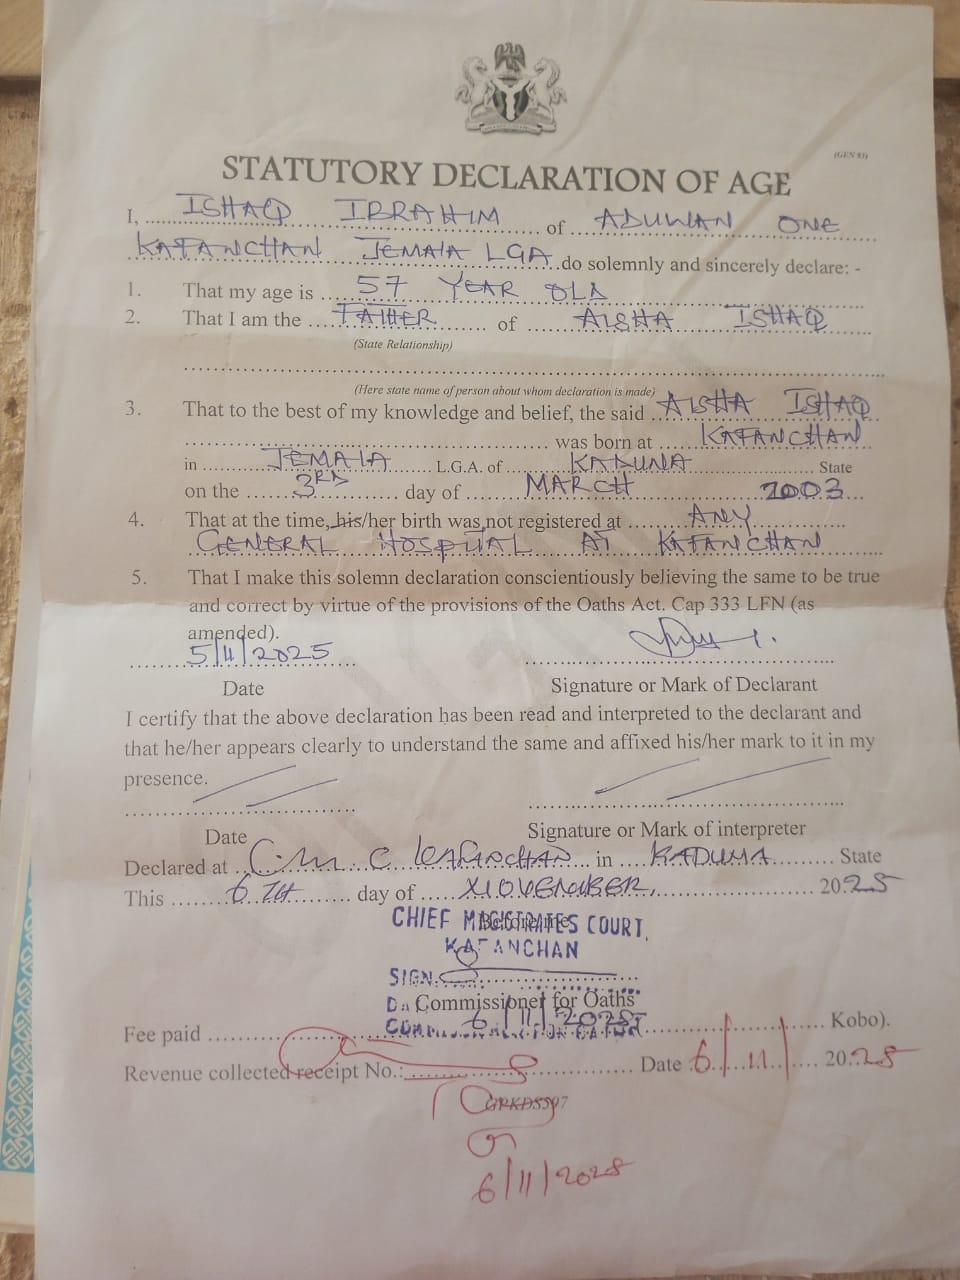 (GEN 93)
STATUTORY DECLARATION OF AGE
I, ISHAQ IBRAHIM of ADUWAN ONE
KAFANCHAN JEMA'A LGA do solemnly and sincerely declare: -
1. That my age is 57 YEAR OLD
2. That I am the FATHER of AISHA ISHAQ
(State Relationship)
(Here state name of person about whom declaration is made)
3. That to the best of my knowledge and belief, the said AISHA ISHAQ
was born at KAFANCHAN
in JEMA'A L.G.A. of KADUNA State
on the 3RD day of MARCH 2003
4. That at the time, his/her birth was not registered at ANY
GENERAL HOSPITAL AT KAFANCHAN
5. That I make this solemn declaration conscientiously believing the same to be true
and correct by virtue of the provisions of the Oaths Act. Cap 333 LFN (as
amended).
5/11/2025
Date Signature or Mark of Declarant
I certify that the above declaration has been read and interpreted to the declarant and
that he/her appears clearly to understand the same and affixed his/her mark to it in my
presence.
Date Signature or Mark of interpreter
Declared at C.M.C KAFANCHAN in KADUNA State
This 6TH day of NOVEMBER, 2025
CHIEF MAGISTRATES COURT,
KAFANCHAN
SIGN
Commissioner for Oaths
6/11/2025
Fee paid Kobo).
Revenue collected receipt No.: Date 6/11/2025
GRKDS507
6/11/2025